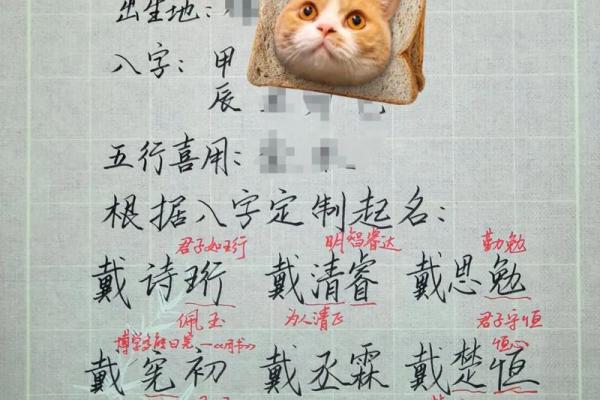 出生地:
八字: 甲
辰
五行喜用:
根据八字定制起名:
君子如珩 明智睿达 勤勉
戴诗珩 戴清睿 戴思勉
佩玉 为人清正 君子守恒
恒心
戴宪初 戴丞霖 戴楚恒